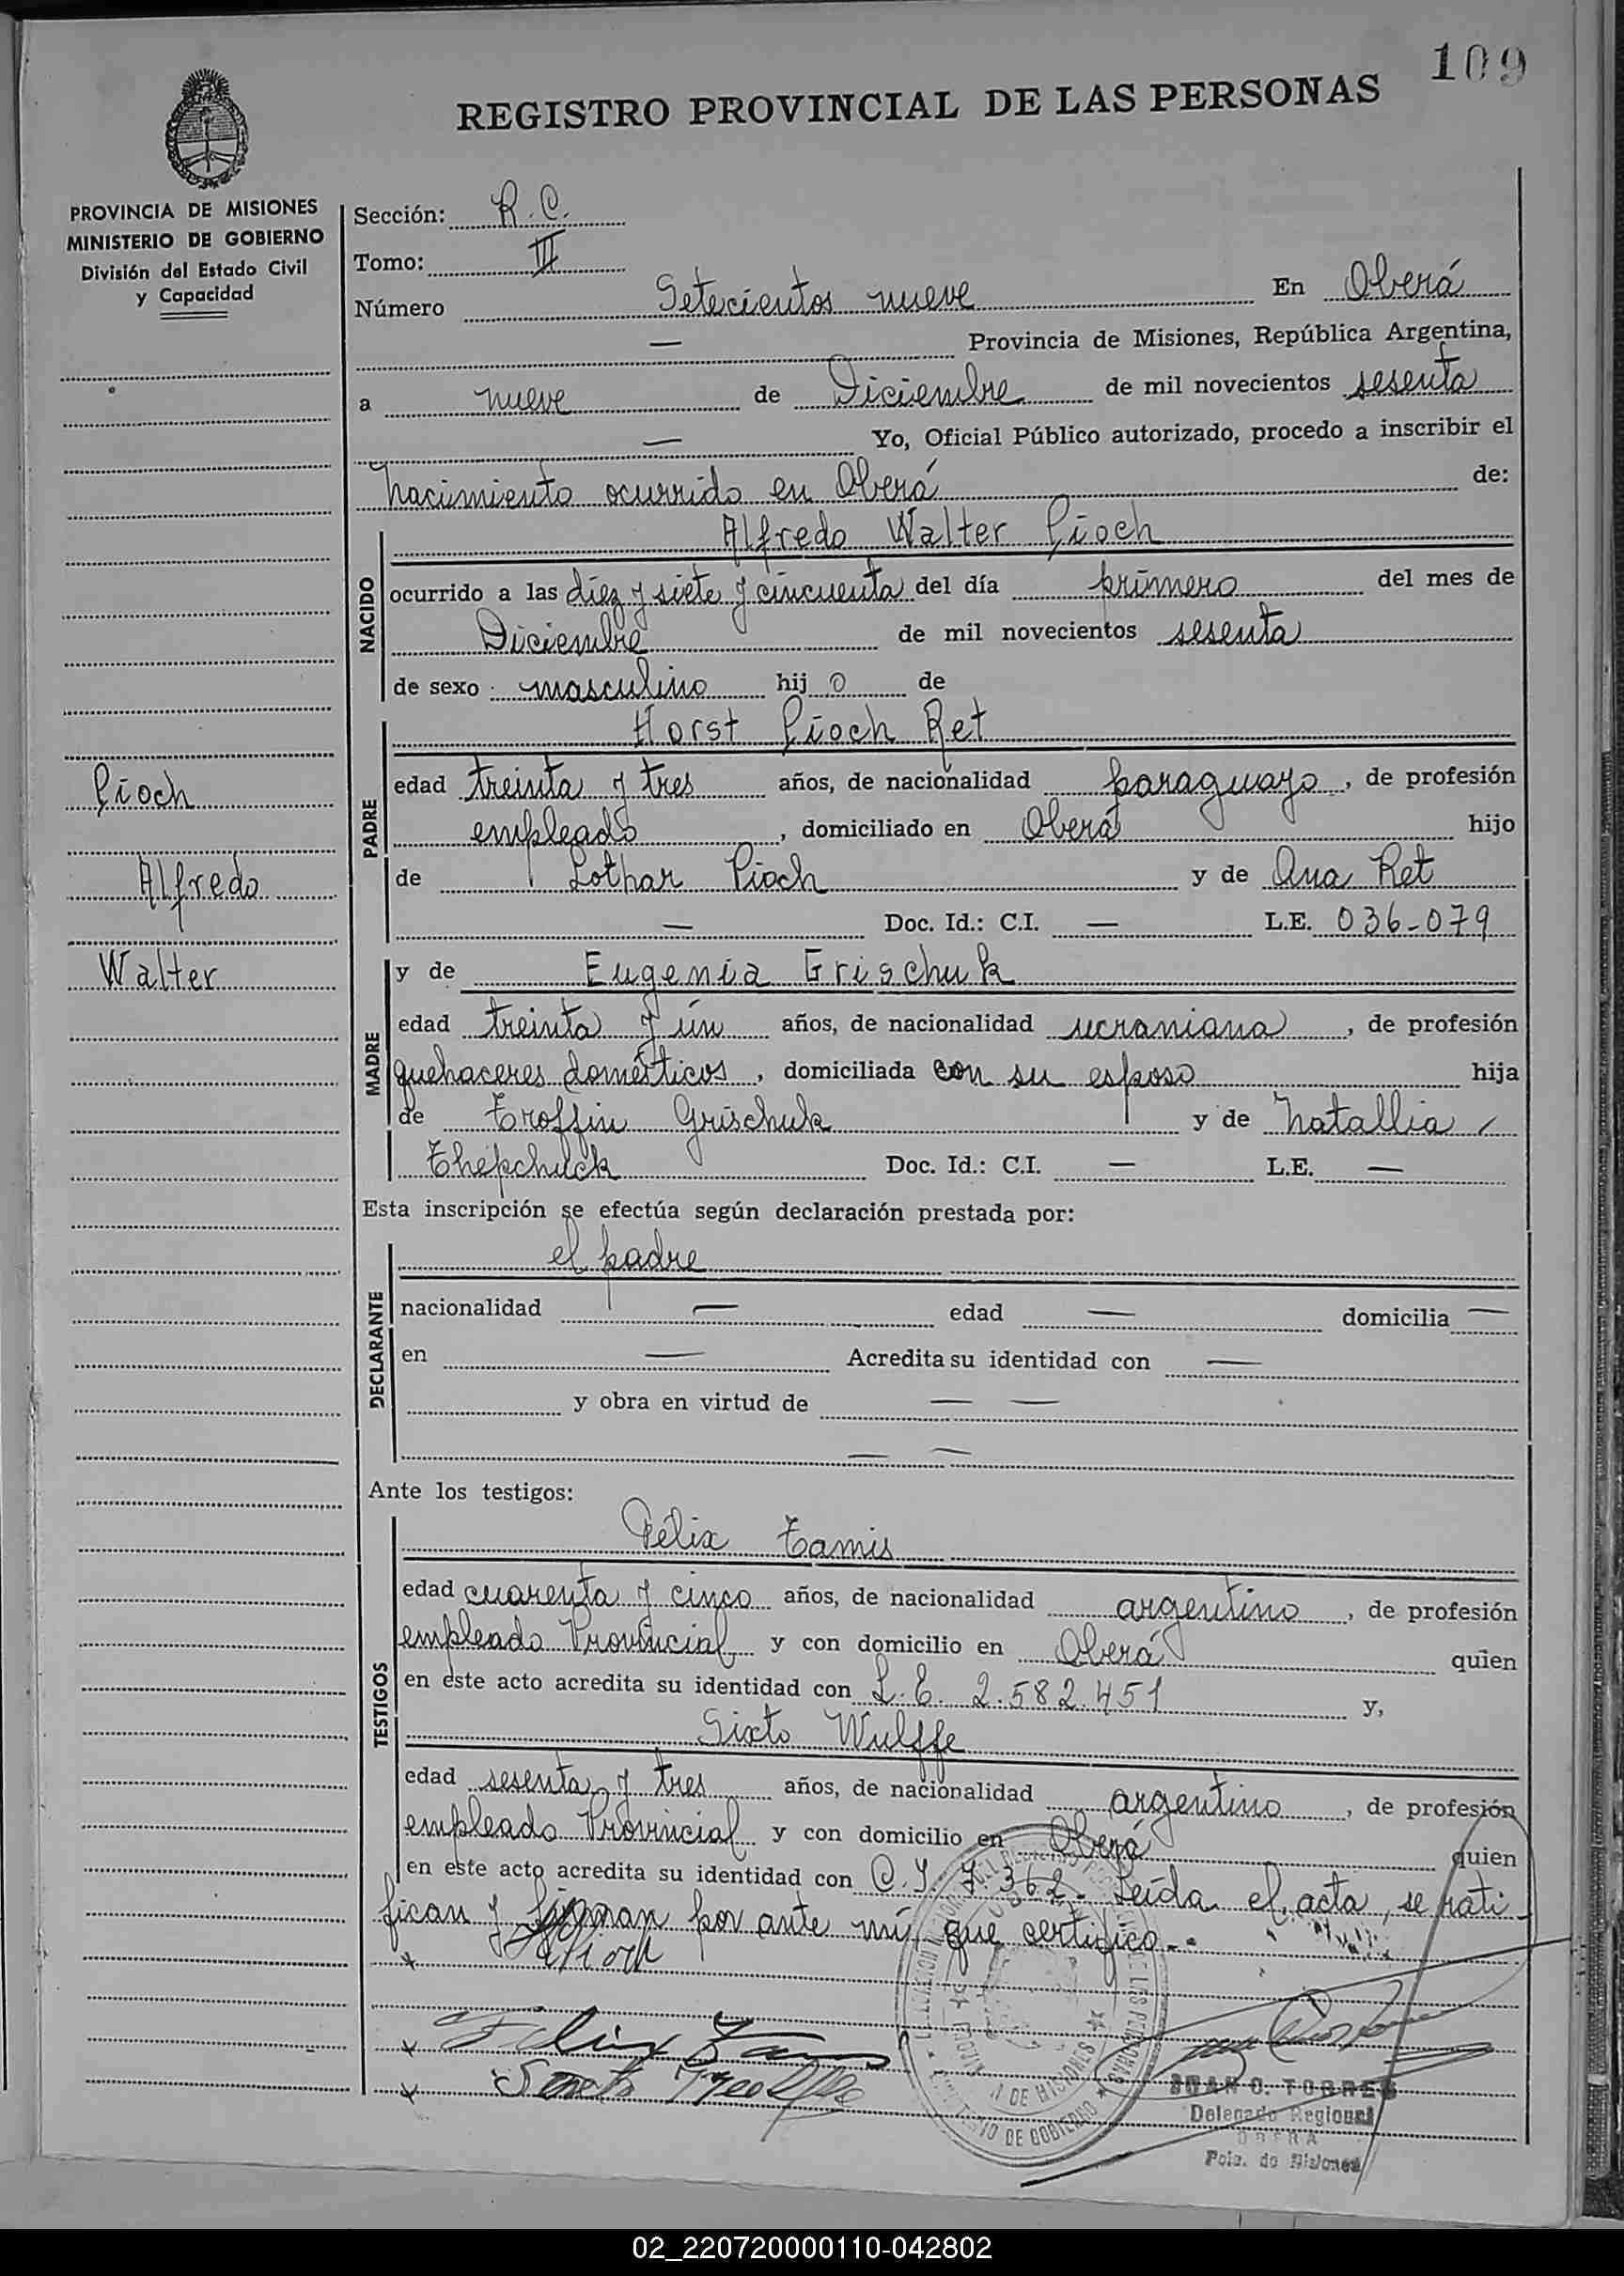 109
REGISTRO PROVINCIAL DE LAS PERSONAS
PROVINCIA DE MISIONES
MINISTERIO DE GOBIERNO
División del Estado Civil
y Capacidad
Sección: R.C.
Tomo: III
Número Setecientos nueve En Oberá
— Provincia de Misiones, República Argentina,
a nueve de Diciembre de mil novecientos sesenta
— Yo, Oficial Público autorizado, procedo a inscribir el
nacimiento ocurrido en Oberá de:
NACIDO
Alfredo Walter Pioch
ocurrido a las diez y siete y cincuenta del día primero del mes de
Diciembre de mil novecientos sesenta
de sexo masculino hijo de
PADRE
Horst Pioch Ret
edad treinta y tres años, de nacionalidad paraguayo, de profesión
Pioch
empleado, domiciliado en Oberá hijo
Alfredo
de Lothar Pioch y de Ana Ret
— Doc. Id.: C.I. — L.E. 036-079
Walter
MADRE
y de Eugenia Grischuk
edad treinta y ún años, de nacionalidad ucraniana, de profesión
quehaceres domésticos, domiciliada con su esposo hija
de Troffin Grischuk y de Natallia
Thepchuck Doc. Id.: C.I. — L.E. —
Esta inscripción se efectúa según declaración prestada por:
DECLARANTE
el padre
nacionalidad — edad — domicilia —
en — Acredita su identidad con —
y obra en virtud de — —
— —
Ante los testigos:
TESTIGOS
Félix Tamis
edad cuarenta y cinco años, de nacionalidad argentino, de profesión
empleado Provincial y con domicilio en Oberá quien
en este acto acredita su identidad con L.E. 2.582.451 y,
Sixto Wulffe
edad sesenta y tres años, de nacionalidad argentino, de profesión
empleado Provincial y con domicilio en Oberá quien
en este acto acredita su identidad con C.I. 7.362.- Leída el acta, se rati-
fican y firman por ante mí que certifico.-
Pioch
Felix Tamis
JUAN C. TORRES
Delegado Regional
OBERA
Pcia. de Misiones
MINISTERIO DE GOBIERNO
DE MISIONES
DE LAS PERSONAS
02_220720000110-042802